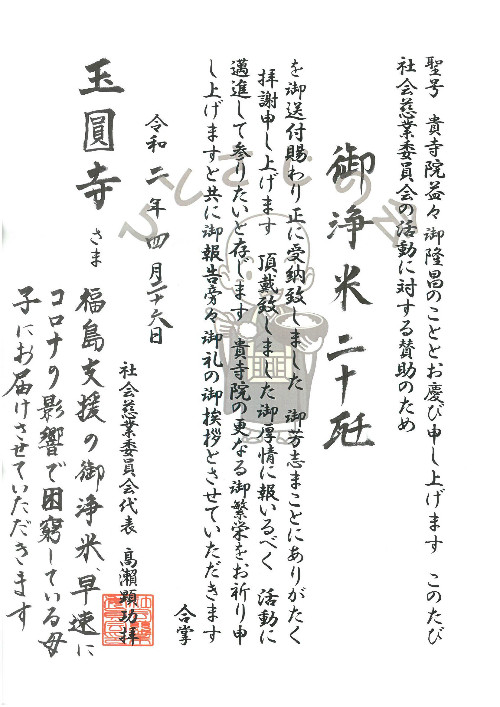 聖号 貴寺院益々御隆昌のこととお慶び申し上げます このたび
社会慈業委員会の活動に対する賛助のため
御浄米二十瓩
を御送付賜わり正に受納致しました 御芳志まことにありがたく
拝謝申し上げます 頂戴致しました御厚情に報いるべく 活動に
邁進して参りたいと存じます 貴寺院の更なる御繁栄をお祈り申
し上げますと共に御報告旁々御礼の御挨拶とさせていただきます
合掌
令和二年四月二十六日
社会慈業委員会代表 高瀬顕功拝
玉圓寺さま
福島支援の御浄米、早速に
コロナの影響で困窮している母
子にお届けさせていただきます
ひとさじの会